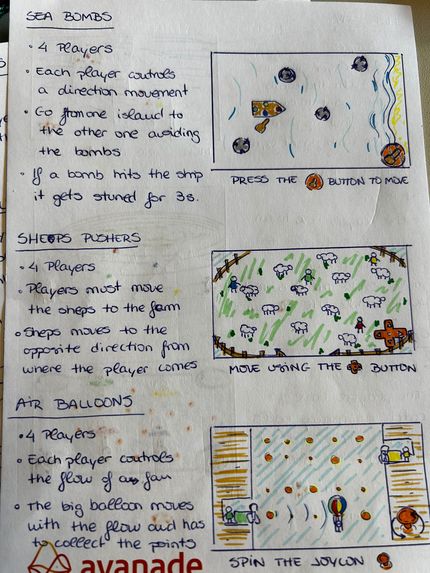 SEA BOMBS
• 4 Players
• Each player controls
a direction movement
• Go from one island to
the other one avoiding
the bombs
• If a bomb hits the ship
it gets stuned for 3s.
PRESS THE A BUTTON TO MOVE
SHEEPS PUSHERS
• 4 Players
• Players must move
the sheps to the farm
• Sheps moves to the
opposite direction from
where the player comes
MOVE USING THE BUTTON
AIR BALLOONS
• 4 Players
• Each player controls
the flow of a fan
• The big balloon moves
with the flow and has
to collect the points
SPIN THE JOYCON
avanade